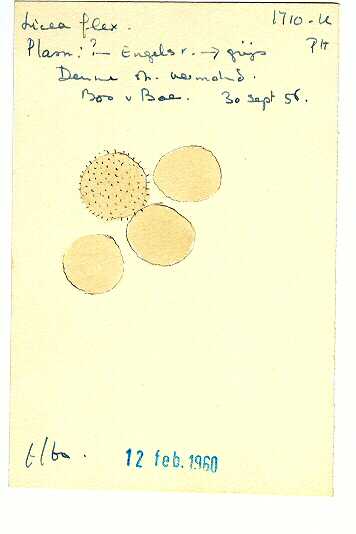 Licea flex. 1710-U
Plasm: ?— Engels r. → grijs PH
Denne st. vermolmd.
Bos v Bae. 30 sept 56.
12 feb. 1960